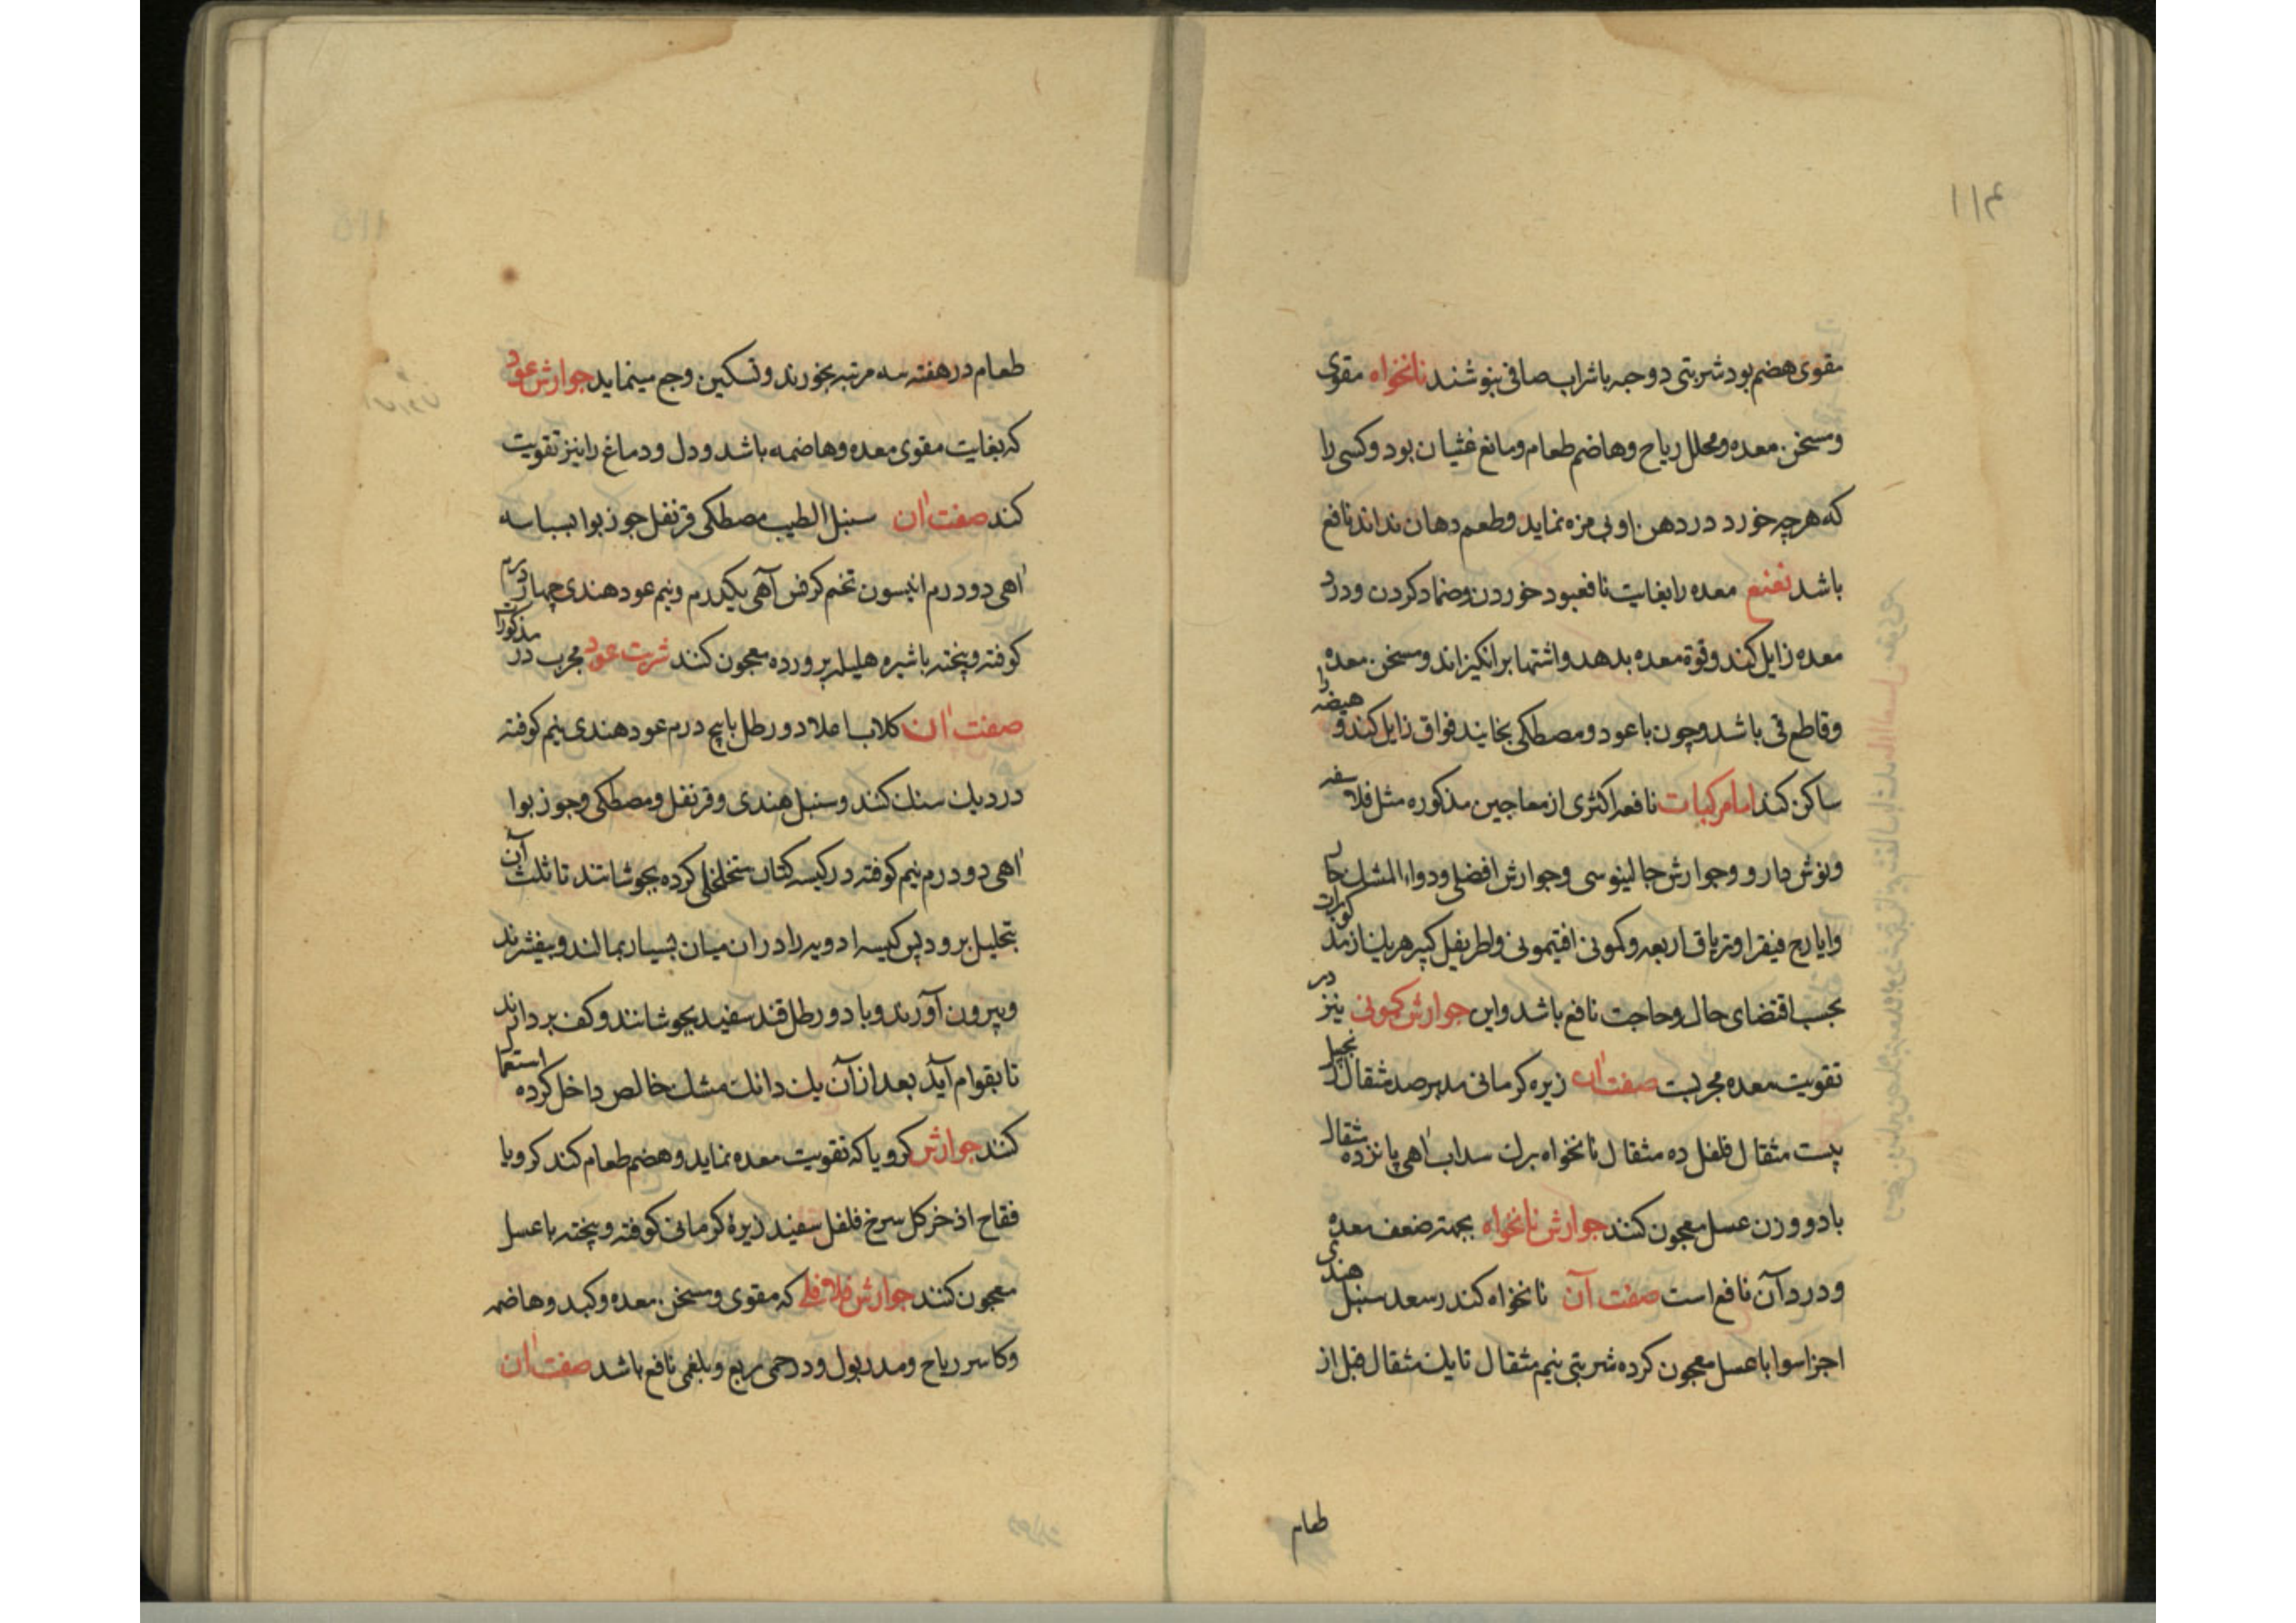 ۱۱۴
مقوی هضم بود شربتی دو حبه با شراب صافی بنوشند نانخواه مقوی
ومسخن معده ومحلل ریاح وهاضم طعام ومانع غثیان بود وکسی را
که هرچه خورد در دهن او بی مزه نماید وطعم دهان نداند نافع
باشد نعنع معده را بغایت نافعبود خوردن وضماد کردن ودرد
معده زایل کند وقوة معده بدهد واشتها برانکیزاند ومسخن معده
وقاطع قی باشد وچون با عود ومصطکی بخایند فواق زایل کند و هیضه را
ساکن کند اما مرکبات نافعه اکثری از معاجین مذکوره مثل فلاسفه
ونوش دارو وجوارش جالینوسی وجوارش افضلی ودواء المشك حار
وایارج فیقرا وتریاق اربعه وکمونی افتیمونی واطریفل کبیر هریك از مذکورات
بحسب اقتضای حال وحاجت نافع باشد واین جوارش کمونی نیز در
تقویت معده مجربست صفت آن زیره کرمانی مدبر صد مثقال زنجبیل
بیست مثقال فلفل ده مثقال نانخواه برك سداب اهی پانزده مثقال
با دو وزن عسل معجون کنند جوارش نانخواه بجهته ضعف معده
ودرد آن نافع است صفت آن نانخواه کندر سعد سنبل هندی
اجزا سوا با عسل معجون کرده شربتی نیم مثقال تا یك مثقال قبل از
طعام
طعام در هفته سه مرتبه بخورند وتسکین وجع مینماید جوارش عود
که بغایت مقوی معده وهاضمه باشد ودل ودماغ را نیز تقویت
کند صفت آن سنبل الطیب مصطکی قرنفل جوز بوا بسباسه
اهی دو درم انیسون تخم کرفس آهی یکدرم ونیم عود هندی چهار درم
کوفته وپخته با شیره هلیله پرورده معجون کنند شربت عود مجرب در مذکورات
صفت آن کلاب اعلا دو رطل با پنج درم عود هندی نیم کوفته
در دیك سنك کنند وسنبل هندی وقرنفل ومصطکی وجوز بوا
اهی دو درم نیم کوفته در کیسه کتان متخلخلی کرده بجوشانند تا ثلث آن
بتحلیل برود پس کیسه ادویه را در ان میان بسیار بمالند وبیفشرند
وبیرون آورند وبا دو رطل قند سفید بجوشانند وکف بردارند
تا بقوام آید بعد از آن یك دانك مشك خالص داخل کرده استعما
کنند جوارش کرویا که تقویت معده نماید وهضم طعام کند کرویا
فقاح اذخر کل سرخ فلفل سفید زیرۀ کرمانی کوفته وپخته با عسل
معجون کنند جوارش فلافلی که مقوی ومسخن معده وکبد وهاضمه
وکاسر ریاح ومدر بول ودر حمی ربع وبلغمی نافع باشد صفت آن